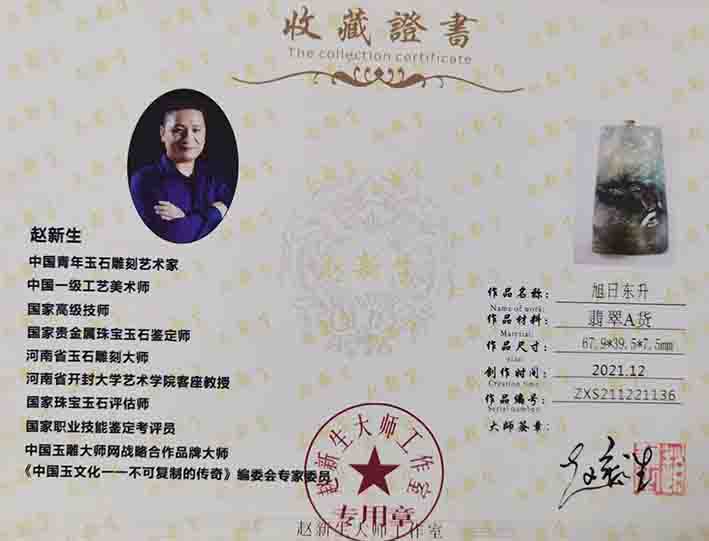 收藏證書
The collection certificate
赵新生
中国青年玉石雕刻艺术家
中国一级工艺美术师
国家高级技师
国家贵金属珠宝玉石鉴定师
河南省玉石雕刻大师
河南省开封大学艺术学院客座教授
国家珠宝玉石评估师
国家职业技能鉴定考评员
中国玉雕大师网战略合作品牌大师
《中国玉文化——不可复制的传奇》编委会专家委员
作品名称： 旭日东升
Name of work:
作品材料： 翡翠A货
Material:
作品尺寸： 67.9*39.5*7.5mm
size:
创作时间： 2021.12
Creation time:
作品编号： ZXS211221136
Serial number:
大师签章：
赵新生
赵新生大师工作室
专用章
赵新生大师工作室